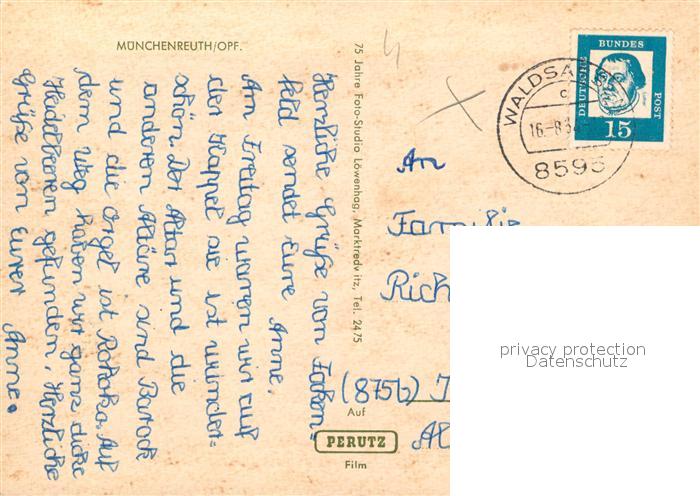 MÜNCHENREUTH/OPF.
Herzliche Grüße von Falken-
feld sendet Eure Anne.
Am Freitag warren wir auf
der Kappel sie ist wunder-
schön. Der Altar und die
anderen Altäre sind Barock
und die Orgel ist Rokoko. Auf
dem Weg haben wir ganz dicke
Heidelbeeren gefunden. Herzliche
Grüße von Eurer Anne.
75 Jahre Foto-Studio Löwenhag, Marktredwitz, Tel. 2475
DEUTSCHE BUNDES POST
15
WALDSA
c
16.-8.
8595
An
Familie
Rich
(875b)
Auf
PERUTZ
Film
privacy protection
Datenschutz